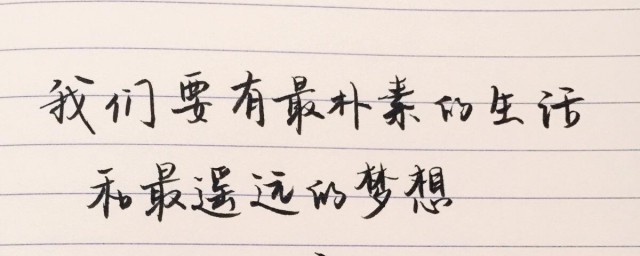 我们要有最朴素的生活
和最遥远的梦想